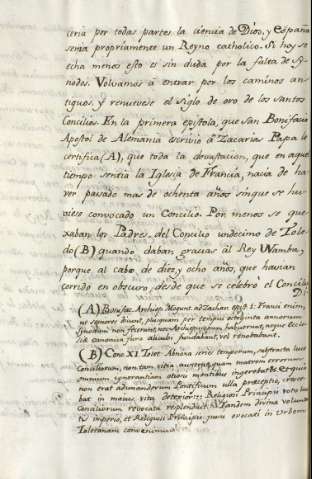 ceria por todas partes la ciencia de Dios, y España
seria propriamente un Reyno catholico. Si hoy se
echa menos esto es sin duda por la falta de Sy-
nodos. Volvamos à entrar por los caminos an-
tiguos, y renuevese el siglo de oro de los santos
Concilios. En la primera epistola, que San Bonifacio
Apostol de Alemania escrivio à Zacarias Papa le
certifica (A), que toda la devastacion, que en aquel
tiempo sentia la Iglesia de Francia, nacia de ha-
ver pasado mas de ochenta años sin que se hu-
viese convocado un Concilio. Por menos se que-
xaban los Padres del Concilio undecimo de Tole-
do (B) quando daban gracias al Rey Wamba,
porque al cabo de diez y ocho años, que havian
corrido en obscuro, desde que se celebró el Concilio
D.
(A) Bonifac. Archiep. Mogunt. ad Zachar. epist. 1. Franci enim,
ut seniores dicunt, plusquam per tempus octoginta annorum
Synodum non fecerunt, nec Archiepiscopum habuerunt, neque Eccle-
siæ canonica jura alicubi fundabant, vel renovabant.
(B) Conc. XI. Tolet. Annosa serie temporum, subtracta luce
Conciliorum, non tam vitia auxerat, quam matrem errorum
omnium ignorantiam otiosis mentibus ingerebat. Et quia
non erat adunandorum Pontificum ulla præceptio, cresce-
bat in majus vita deterior. Religiosi Principis voto lux
Conciliorum revocata resplenduit. Tandem divina voluntate
imperio, et Religiosi Principis jussu evocati in urbem
Toletanam convenimus